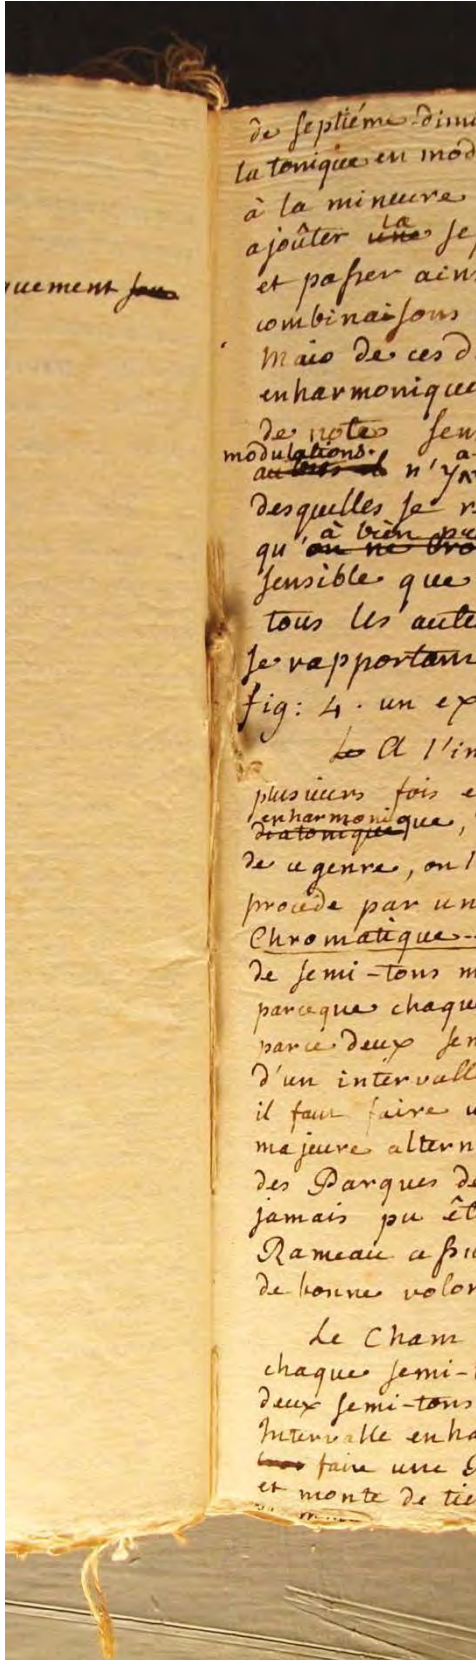 quement
de septiéme dimi
la tonique en mod
à la mineure
ajoûter la se
et passer ains
combinaisons
Mais de ces d
enharmonique
de note sen
modulations.
n'y a
desquelles se r
à bien
qu'on ne
sensible que
tous les aut
se rapportant
fig: 4. un ex
Le A l'in
plusieurs fois e
enharmonique,
diatonique
de ce genre, on l
procède par un
Chromatique
de semi-tons m
parceque chaque
parce deux sen
d'un intervall
il faut faire u
majeure altern
des Parques de
jamais pu êt
Rameau assu
de bonne volon
Le Chant
chaque semi-t
deux semi-tons
Intervalle enha
faire une
et monte de tie